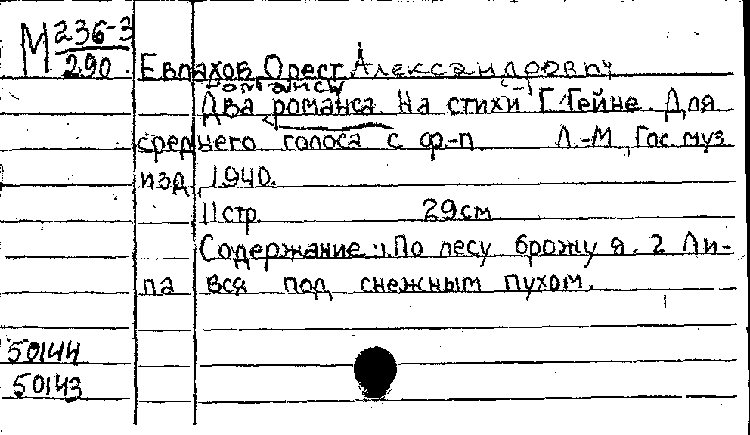 М 236-3
290
Евлахов, Орест Александрович
романсы
Два романса. На стихи Г. Гейне. Для
среднего голоса с ф-п. Л.-М., Гос. муз.
изд., 1940.
11 стр. 29 см
Содержание: 1. По лесу брожу я. 2 Ли-
па вся под снежным пухом.
50144
50143